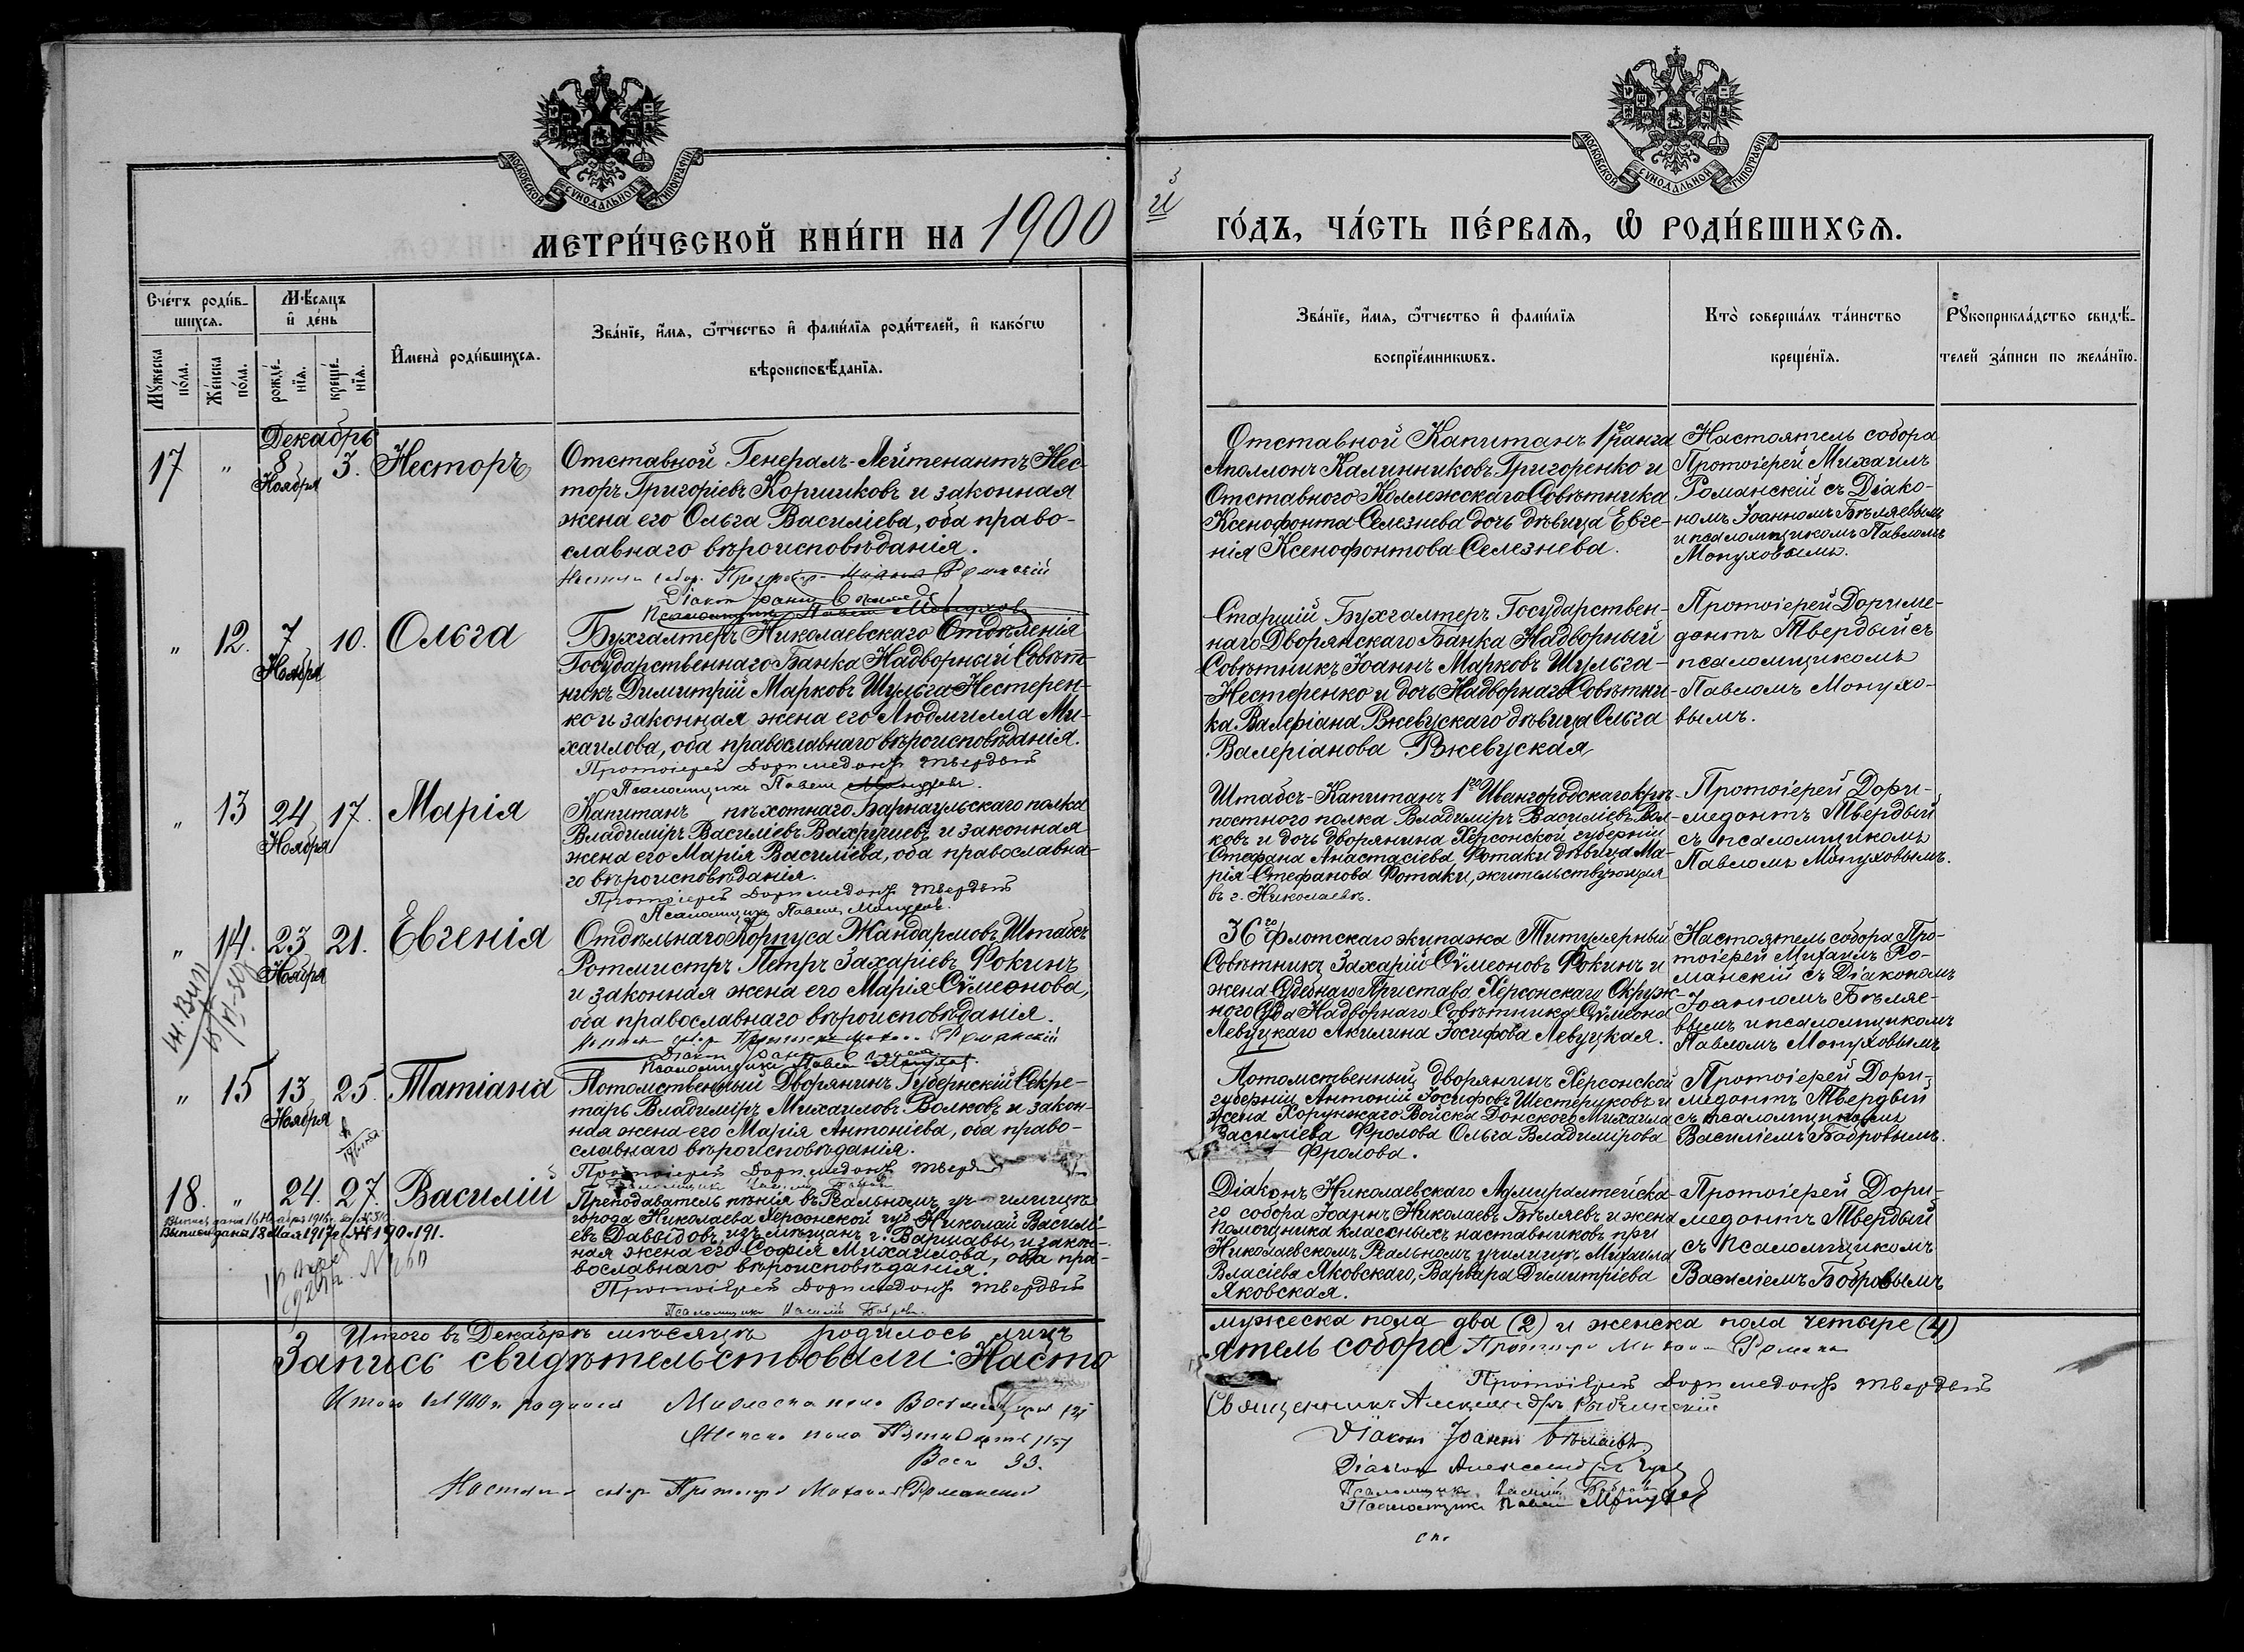 МОСКОВСКОЙ СУНОДАЛЬНОЙ ТИПОГРАФІИ
МЕТРИ́ЧЕСКОЙ КНИ́ГИ НА 1900
Сче́тъ роди́в-
шихсѧ.
Мѣ́сѧцъ
и҆ де́нь
Мꙋ́жеска
по́ла.
Же́нска
по́ла.
рожде́-
нїѧ.
креще́-
нїѧ.
И҆мена̀ роди́вшихсѧ.
Зва́нїе, и҆́мѧ, ѻ҆́тчество и҆ фами́лїѧ роди́телей, и҆ како́гѡ
вѣроисповѣ́данїѧ.
Декабрь
17 " 8 Ноября 3. Несторъ
Отставной Генералъ-Лейтенантъ Нес-
торъ Григоріевъ Коршиковъ и законная
жена его Ольга Василіева, оба право-
славнаго вѣроисповѣданія.
" 12. 7 Ноября 10. Ольга
Бухгалтеръ Николаевскаго Отдѣленія
Государственнаго Банка Надворный Совѣт-
никъ Димитрій Марковъ Шульга-Нестерен-
ко и законная жена его Людмилла Ми-
хаилова, оба православнаго вѣроисповѣданія.
Протоіерей Доримедонтъ Твердый
Псаломщикъ Павелъ Мопуховъ.
" 13 24 Ноября 17. Марія
Капитанъ пѣхотнаго Барнаульскаго полка
Владиміръ Василіевъ Вахрушевъ и законная
жена его Марія Василіева, оба православна-
го вѣроисповѣданія.
Протоіерей Доримедонтъ Твердый
Псаломщикъ Павелъ Мопуховъ.
" 14. 23 Ноября 21. Евгенія
Отдѣльнаго Корпуса Жандармовъ Штабсъ
Ротмистръ Петръ Захаріевъ Фокинъ
и законная жена его Марія Сѵмеонова,
оба православнаго вѣроисповѣданія.
" 15 13 Ноября 25. Татіана
Потомственный Дворянинъ Губернскій Секре-
тарь Владиміръ Михаиловъ Волковъ и закон-
ная жена его Марія Антоніева, оба право-
славнаго вѣроисповѣданія.
Протоіерей Доримедонтъ Твердый
18. " 24. 27. Василій
Выписи даны 18 Мая 1917 г. №№ 190 и 191.
Преподаватель пѣнія въ Реальномъ училищѣ
города Николаева Херсонской губ. Николай Василі-
евъ Даввідовъ, изъ мѣщанъ г. Варшавы, и закон-
ная жена его Софія Михаилова, оба пра-
вославнаго вѣроисповѣданія.
Протоіерей Доримедонтъ Твердый
Псаломщикъ Василій Бобровъ.
Итого въ Декабрѣ мѣсяцѣ родилось лицъ
Запись свидѣтельствовали: Насто
Итого въ 1900 г. родилось
Всего 33.
МОСКОВСКОЙ СУНОДАЛЬНОЙ ТИПОГРАФІИ
ГО́ДЪ, ЧА́СТЬ ПЕ́РВАѦ, Ѡ҆ РОДИ́ВШИХСѦ.
Зва́нїе, и҆́мѧ, ѻ҆́тчество и҆ фами́лїѧ
воспрїе́мникѡвъ.
Кто̀ соверша́лъ та́инство
креще́нїѧ.
Рꙋкоприкла́дство свидѣ́-
телей за́писи по жела́нїю.
Отставной Капитанъ 1го ранга
Аполлонъ Калинниковъ Григоренко и
Отставного Коллежскаго Совѣтника
Ксенофонта Селезнева дочь дѣвица Евге-
нія Ксенофонтова Селезнева.
Настоятель собора
Протоіерей Михаилъ
Романскій съ Діако-
номъ Іоанномъ Бѣляевымъ
и псаломщикомъ Павломъ
Мопуховымъ.
Старшій Бухгалтеръ Государствен-
наго Дворянскаго Банка Надворный
Совѣтникъ Іоаннъ Марковъ Шульга-
Нестеренко и дочь Надворнаго Совѣтни-
ка Валеріана Ржевускаго дѣвица Ольга
Валеріанова Ржевуская
Протоіерей Дориме-
донтъ Твердый съ
псаломщикомъ
Павломъ Мопухо-
вымъ.
Штабсъ-Капитанъ 1го Ивангородскаго крѣ-
постного полка Владиміръ Василіевъ Вол-
ковъ и дочь дворянина Херсонской губерніи
Стефана Анастасіева Фотаки дѣвица Ма-
рія Стефанова Фотаки, жительствующая
въ г. Николаевѣ.
Протоіерей Дори-
медонтъ Твердый
съ псаломщикомъ
Павломъ Мопуховымъ.
36го флотскаго экипажа Титулярный
Совѣтникъ Захарій Сѵмеоновъ Фокинъ и
жена Судебнаго Пристава Херсонскаго Окруж-
ного Суда Надворнаго Совѣтника Сѵмеона
Левуцкаго Акилина Іосифова Левуцкая.
Настоятель собора Про-
тоіерей Михаилъ Ро-
манскій съ Діакономъ
Іоанномъ Бѣляе-
вымъ и псаломщикомъ
Павломъ Мопуховымъ
Потомственный дворянинъ Херсонской
губерніи Антоній Іосифовъ Шестеруковъ и
жена Хорунжаго Войска Донского Михаила
Василіева Фролова Ольга Владимірова
Фролова.
Протоіерей Дори-
медонтъ Твердый
съ псаломщикомъ
Василіемъ Бобровымъ.
Діаконъ Николаевскаго Адмиралтейска-
го собора Іоаннъ Николаевъ Бѣляевъ и жена
помощника классныхъ наставниковъ при
Николаевскомъ Реальномъ училищѣ Михаила
Власіева Яковскаго, Варвара Димитріева
Яковская.
Протоіерей Дори-
медонтъ Твердый
съ псаломщикомъ
Василіемъ Бобровымъ
мужеска пола два (2) и женска пола четыре (4)
ятель собора
Протоіерей Доримедонтъ Твердый
Священникъ Александръ
Діаконъ Іоаннъ Бѣляевъ
Діаконъ Александръ
Псаломщикъ Василій Бобровъ
Псаломщикъ Павелъ Мопуховъ